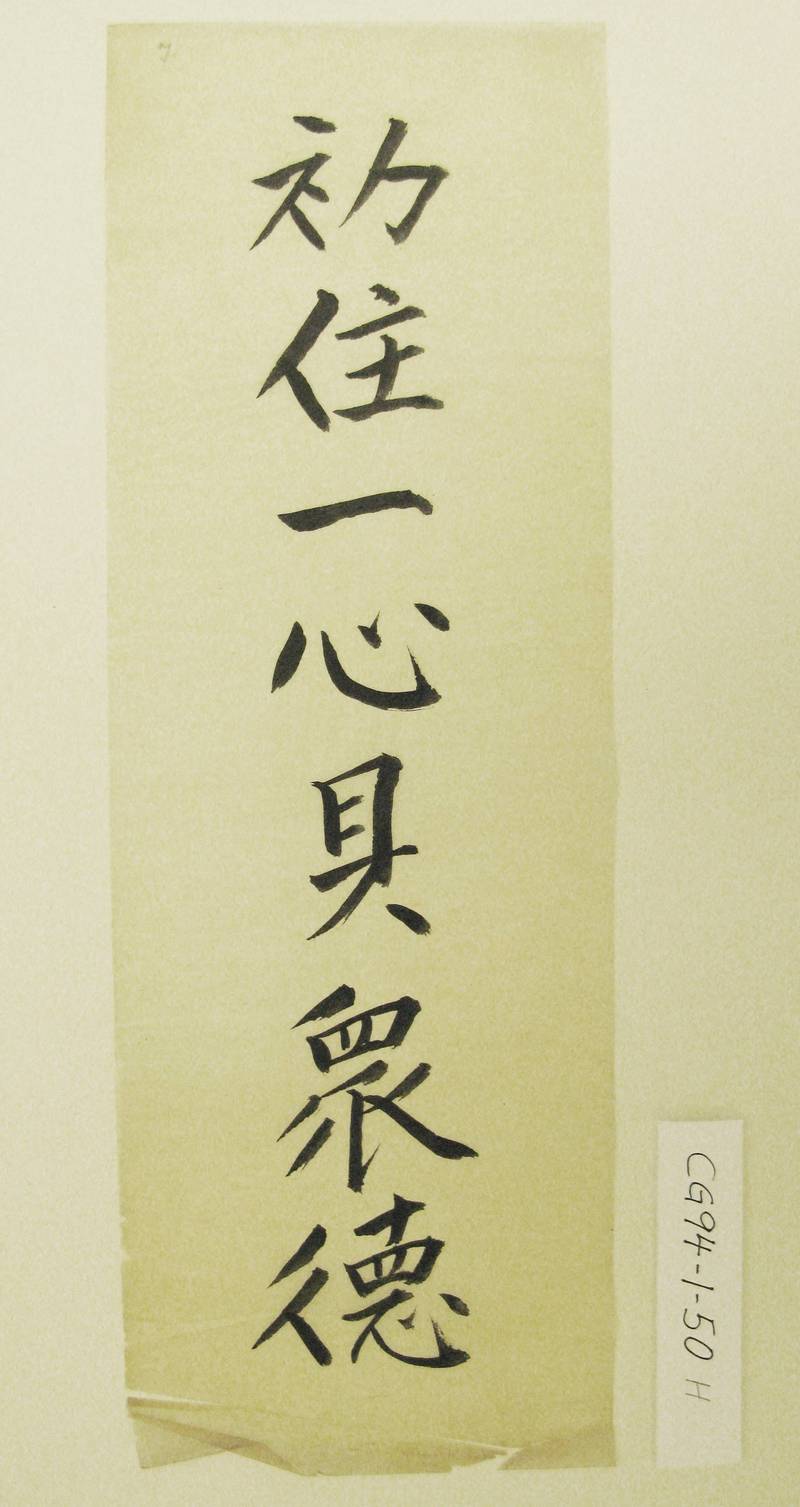 初住一心具衆德
CG94-1-50 H